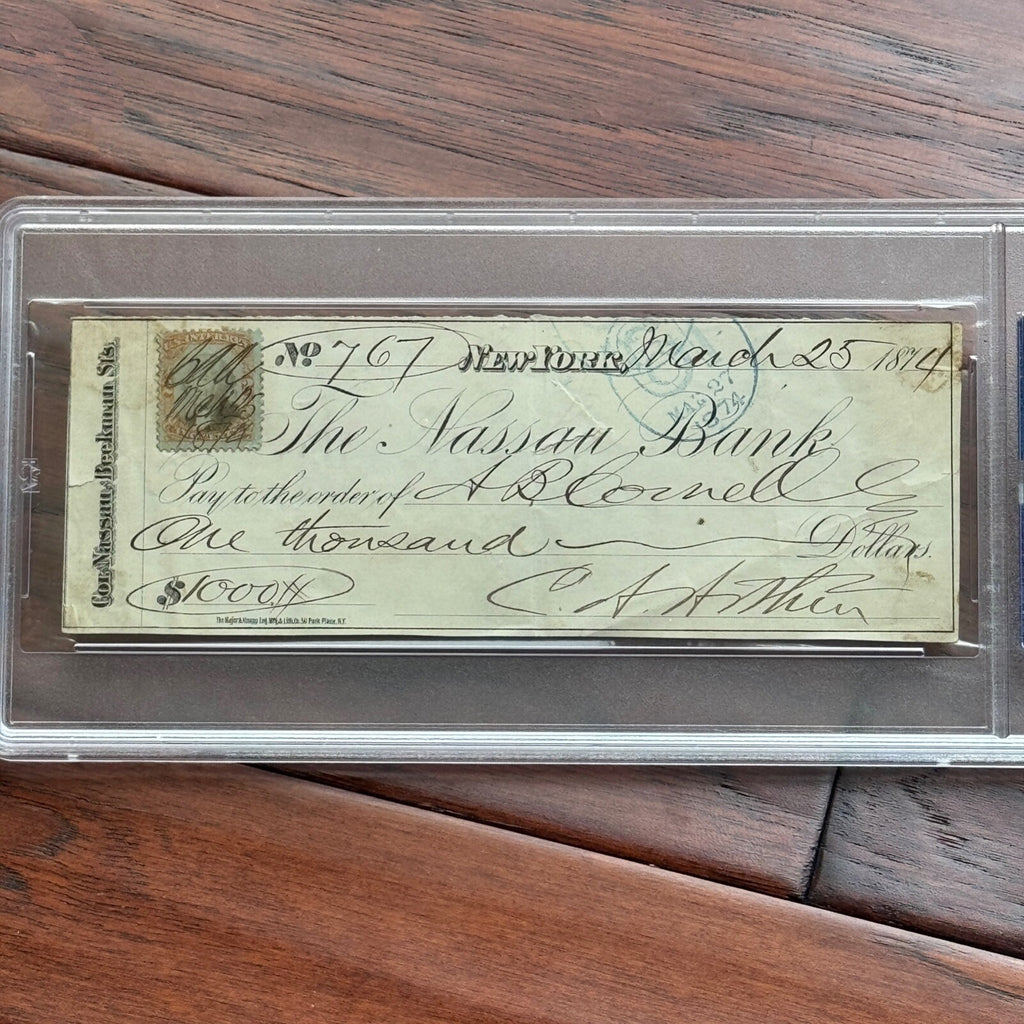 Cor. Nassau & Beekman Sts.
No 767 New York, March 25 1874
MAR 27
74
The Nassau Bank
Pay to the order of A B Cornell
One thousand Dollars.
$1000.
C. A. Arthur
The Major & Knapp Eng. Mfg. & Lith. Co. 56 Park Place, N.Y.